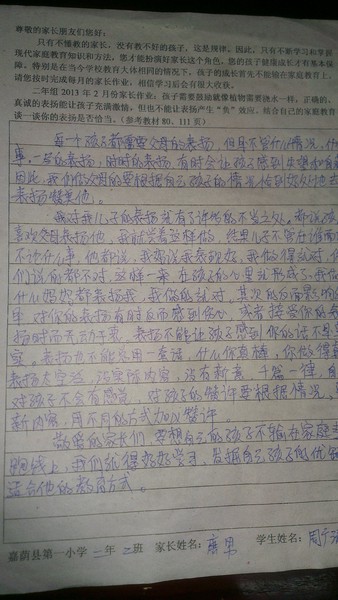 尊敬的家长朋友们您好:
只有不懂教的家长,没有教不好的孩子,这是规律。因此,只有不断学习和掌握
现代家庭教育知识和方法,您才能扮演好家长这个角色,您的孩子健康成长才有基本保
障。特别是在当今学校教育大体相同的情况下,孩子的成长首先不能输在家庭教育上,
请您按时完成每月的家长作业,相信学习后会有很大收获。
二年组 2013 年 2 月份家长作业:孩子需要鼓励就像植物需要浇水一样,正确的、
真诚的表扬能让孩子充满激情。但也不能让表扬产生"负"效应,结合自己的家庭教育
谈一谈你的表扬是否恰当。(参考教材 80、111 页)
每一个孩子都需要父母的表扬,但是不管什么情况,什
事,一些的表扬,随时的表扬,有时会让孩子感到
因此,我们做父母的要根据自己孩子的情况恰到好处地去
表扬
我对我儿子的表扬就有了许多的不当之处。都说孩
喜欢父母表扬他,我就尝着这样做,结果儿子不管在谁面前
不论什么事,他都说,我妈说我表现好,我做得就对,
们说啥都不对,这样一来在孩子的心里就形成了,我做
什么妈妈都表扬我,我做的就对。其次
对你的表扬有时反而感到伤心,或者接受你的表
扬时而无动于衷,表扬不能让孩子感到你的话不是
实。表扬也不能总用一套话,什么你真棒,你做得真
表扬太空洞,没实际内容,没有新意,千篇一律,
对孩子不会有感觉,对孩子的赞许要根据情况,
新内容,用不同的方式加以赞许。
敬爱的家长们,要想自己的孩子不输在家庭
跑线上,我们就得好好学习,发掘自己孩子的优
适合他的教育方式。
嘉荫县第一小学 一年 二班 家长姓名: 学生姓名:周